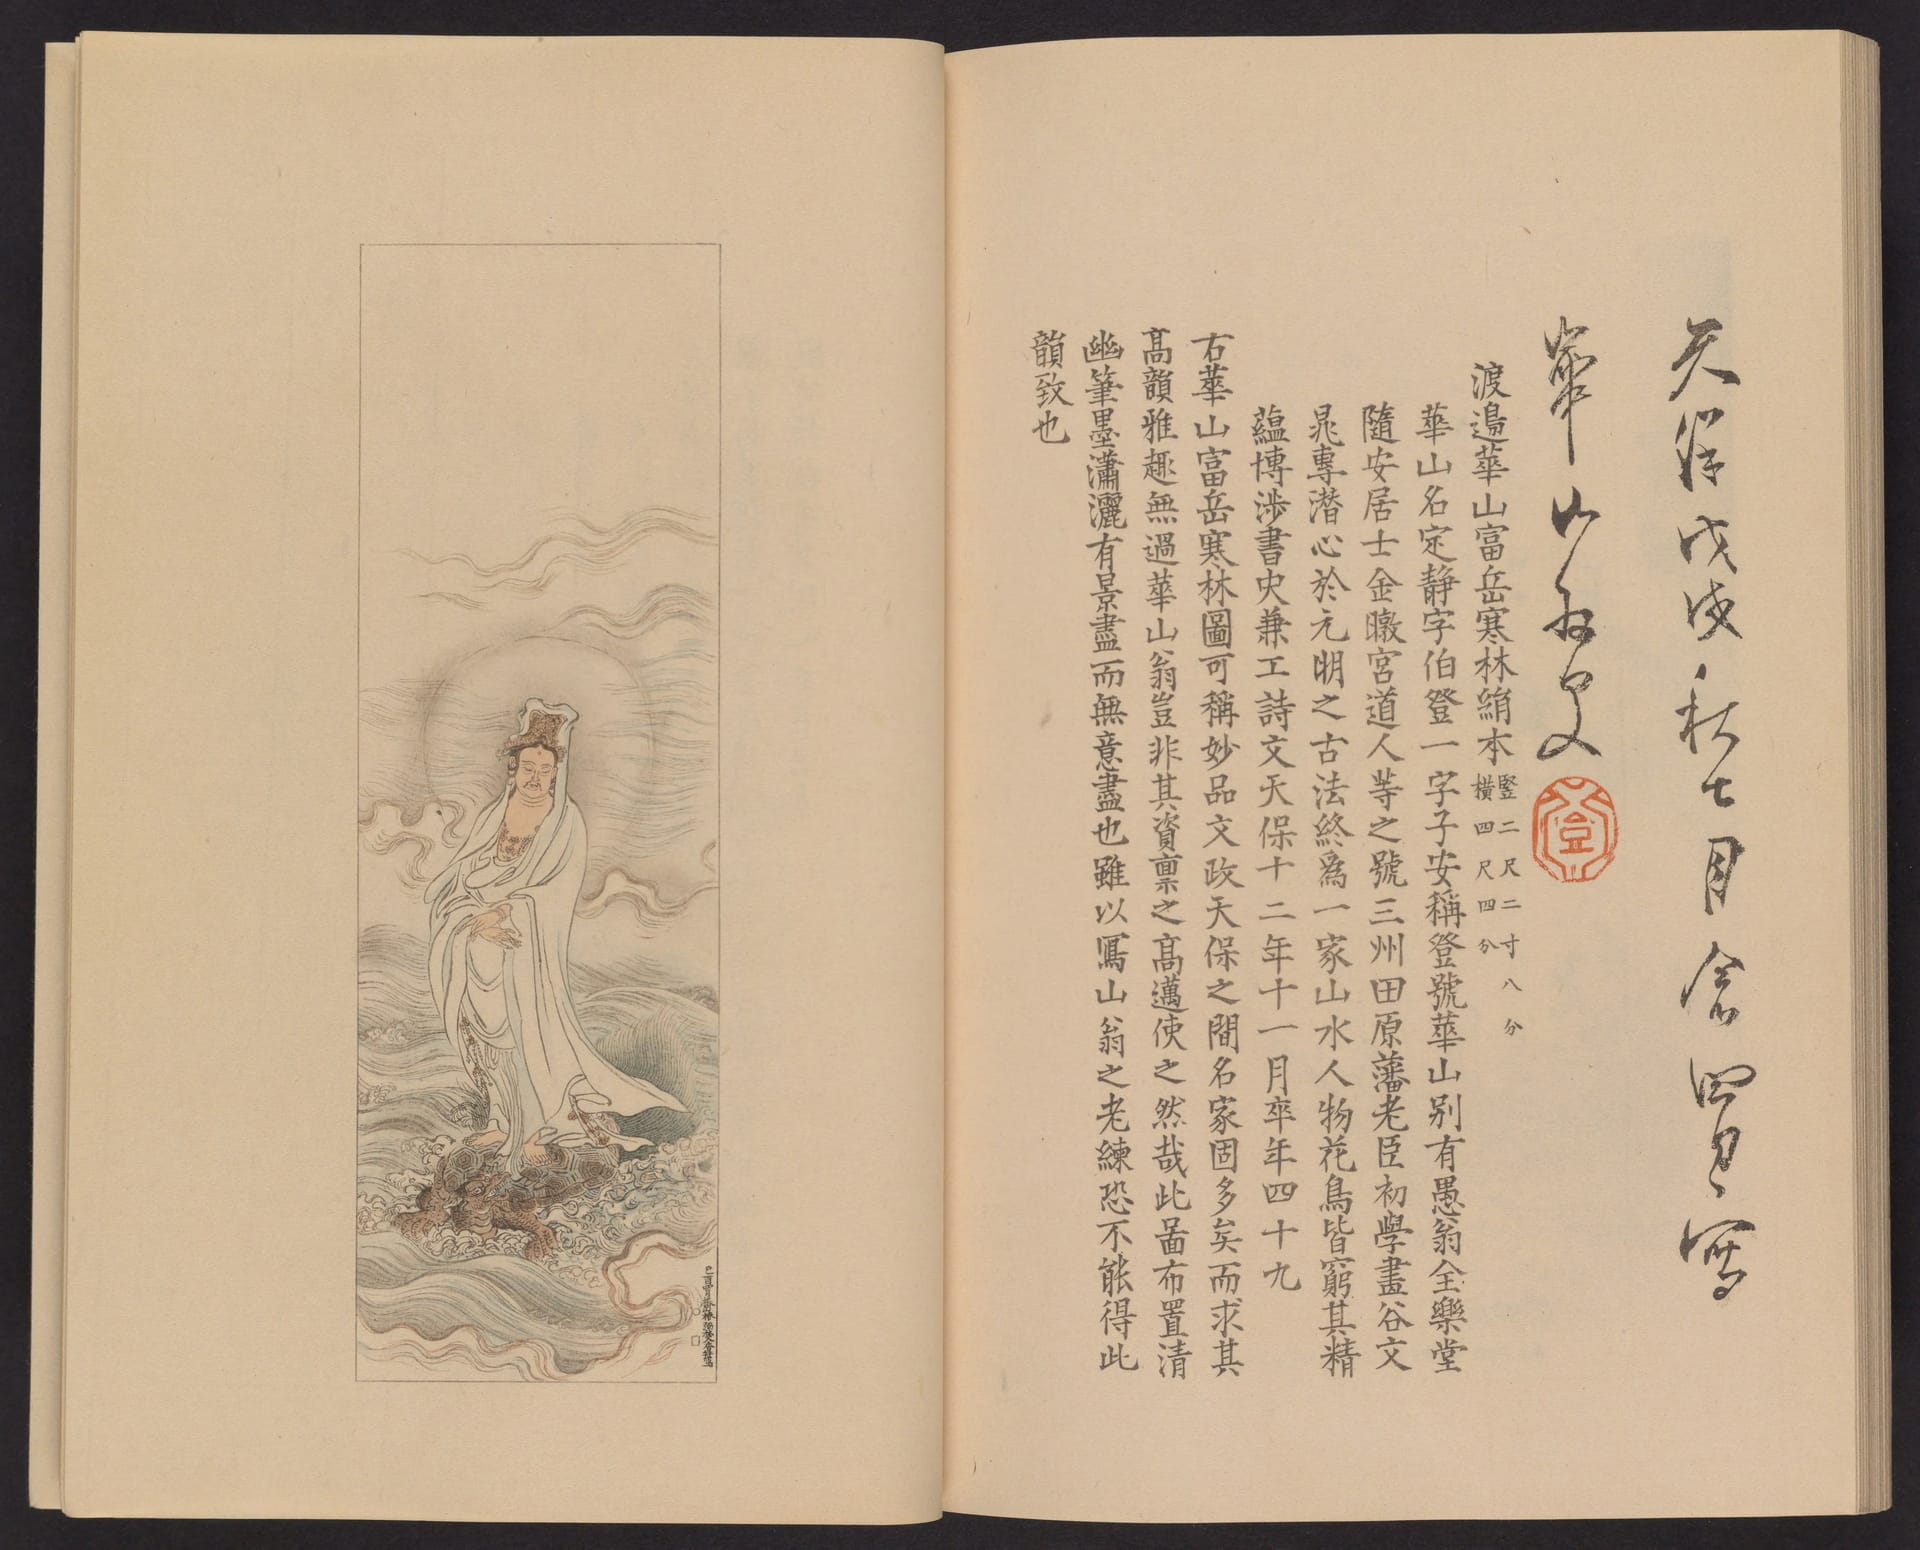 天保戊戌秋七月念四日寫
華山外史
登
渡邉華山富岳寒林絹本 竪二尺二寸八分
横四尺四分
華山名定靜字伯登一字子安稱登號華山别有愚翁全樂堂
隨安居士金暾宮道人等之號三州田原藩老臣初學畫谷文
晁專潜心於元明之古法終爲一家山水人物花鳥皆窮其精
蘊博渉書史兼工詩文天保十二年十一月卒年四十九
右華山富岳寒林圖可稱妙品文政天保之間名家固多矣而求其
高韻雅趣無過華山翁豈非其資禀之高邁使之然哉此畵布置清
幽筆墨瀟灑有景盡而無意盡也雖以寫山翁之老練恐不能得此
韻致也